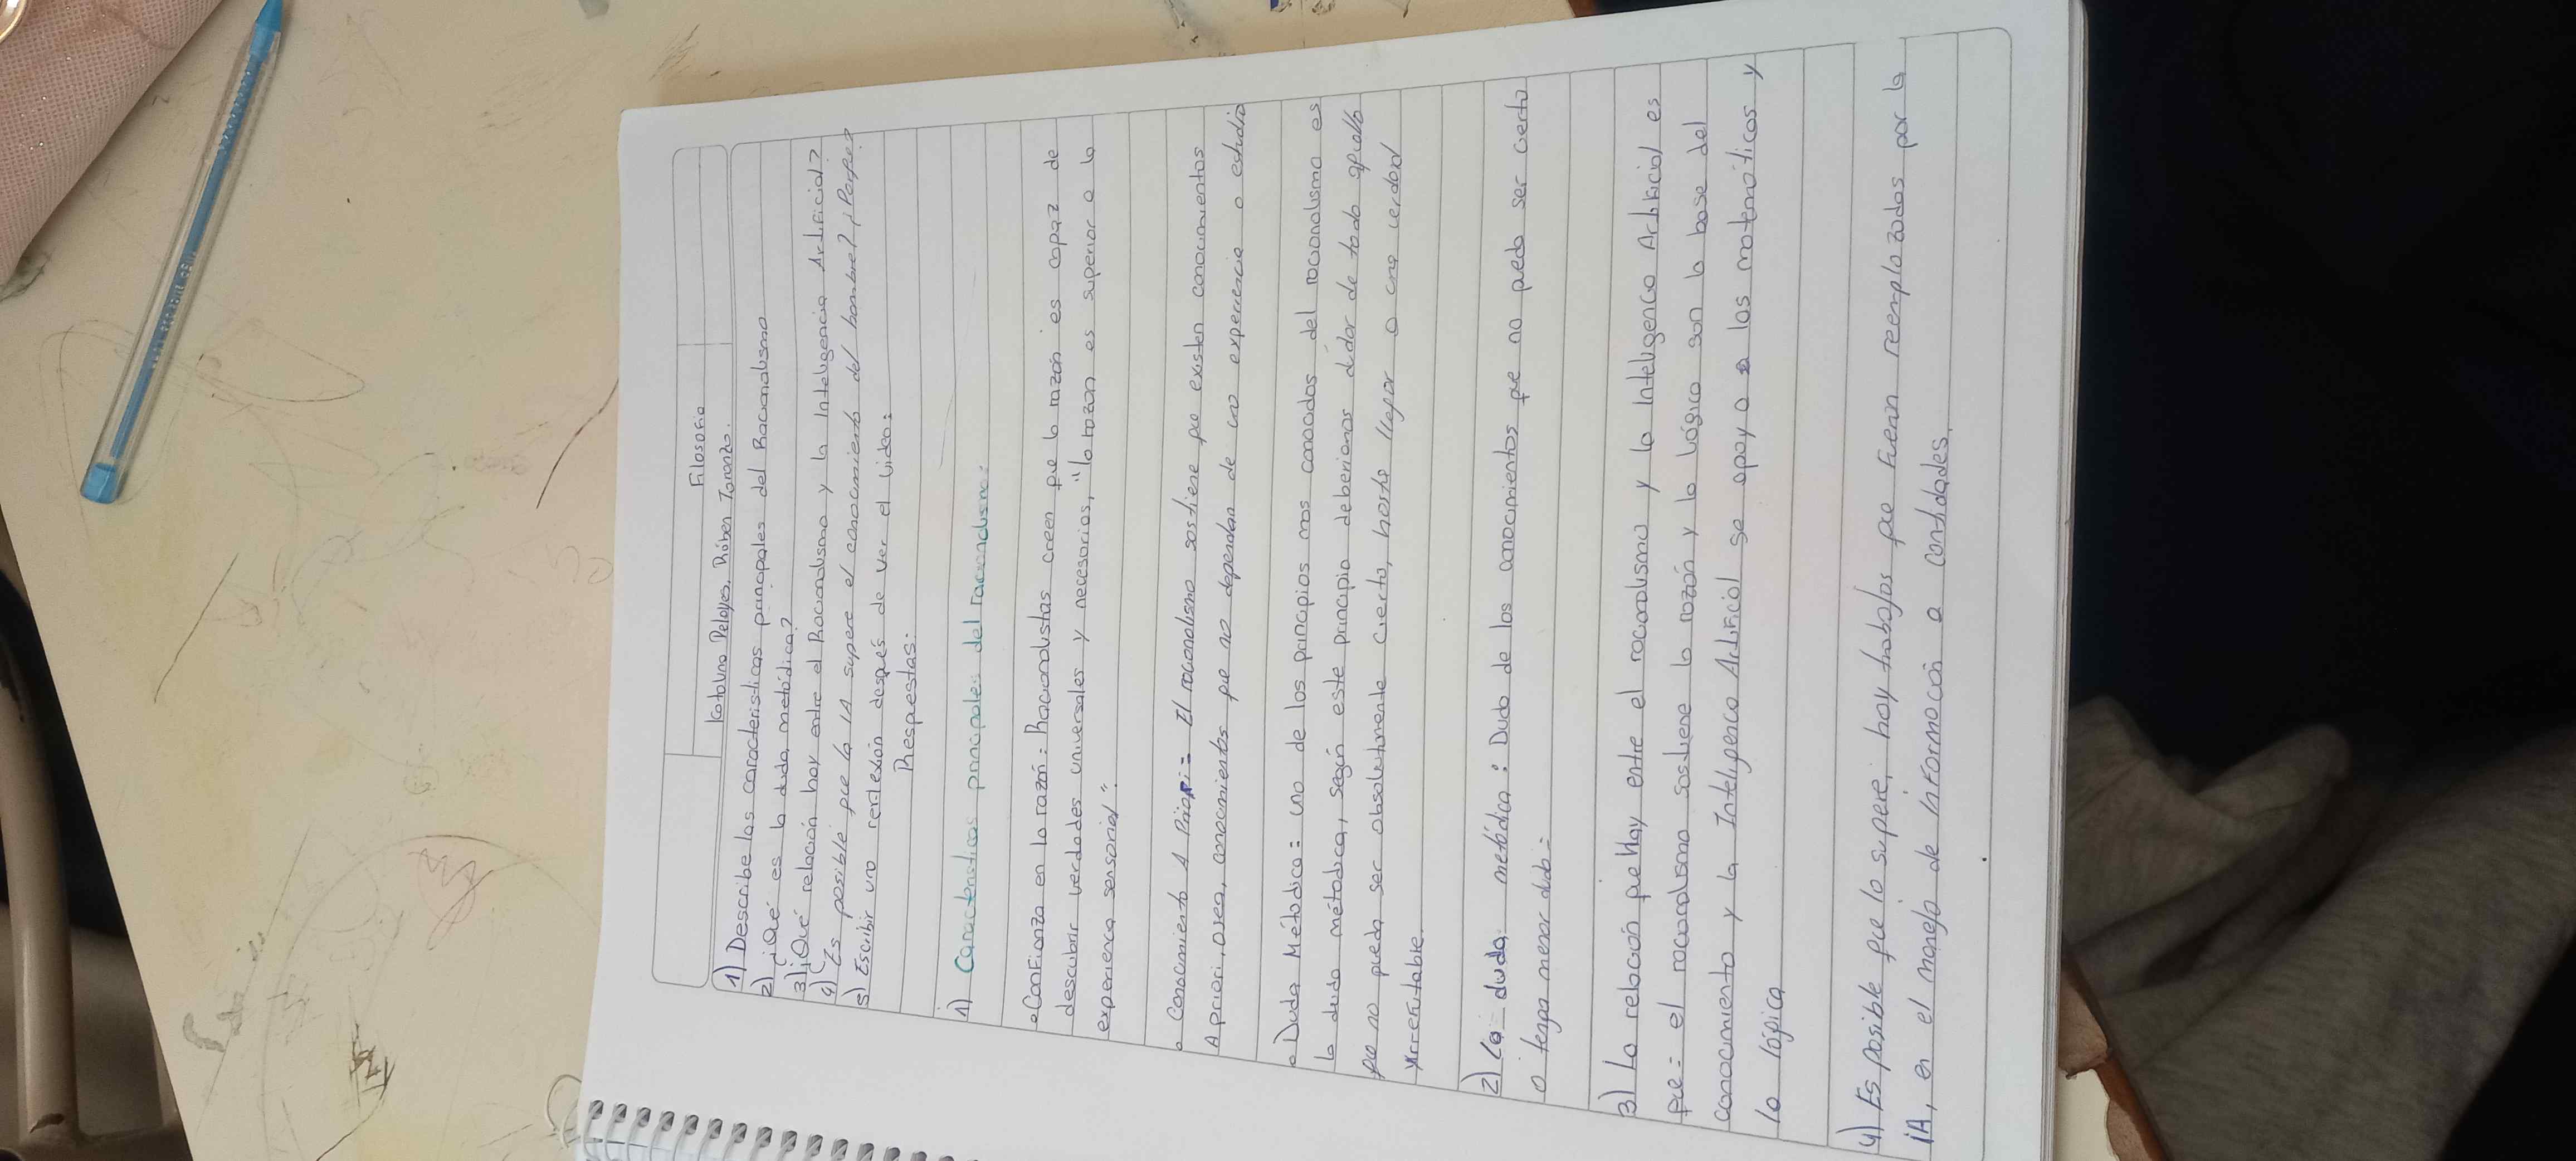 Filosofia
Catalina Pelayes. Ruben Taranzo.
1) Describe las caracteristicas principales del Racionalismo
2) ¿Qué es la duda metódica?
3) ¿Qué relación hay entre el Racionalismo y la Inteligencia Artificial?
4) ¿Es posible que la IA supere el conocimiento del hombre? ¿Porque?
5) Escribir una reflexión después de ver el Video:
Respuestas:
1) Caracteristicas principales del racionalismo:
• Confianza en la razón: Racionalistas creen que la razón es capaz de
descubrir verdades universales y necesarios, "la razon es superior a la
experiencia sensorial".
• Conocimiento A Priori = El racionalismo sostiene que existen conocimientos
A priori, osea, conocimientos que no dependan de una experiencia o estudio
• Duda Métodica: uno de los principios mas conocidos del racionalismo es
la duda métodica, según este principio deberiamos dudar de todo aquello
que no pueda ser absolutamente cierto, hasta llegar a una verdad
irrefutable.
2) La duda metódica: Duda de los conocimientos que no pueda ser cierto
o tenga menor duda =
3) La relación que Hay entre el racionalismo y la Inteligencia Artificial es
que = el racionalismo sostiene la razón y la lógica son la base del
conocimiento y la Inteligencia Artificial se apoya a las matemáticas y
la lógica
4) Es posible que lo supere, hay trabajos que fueran reemplazados por la
iA, en el manejo de informacion a cantidades.